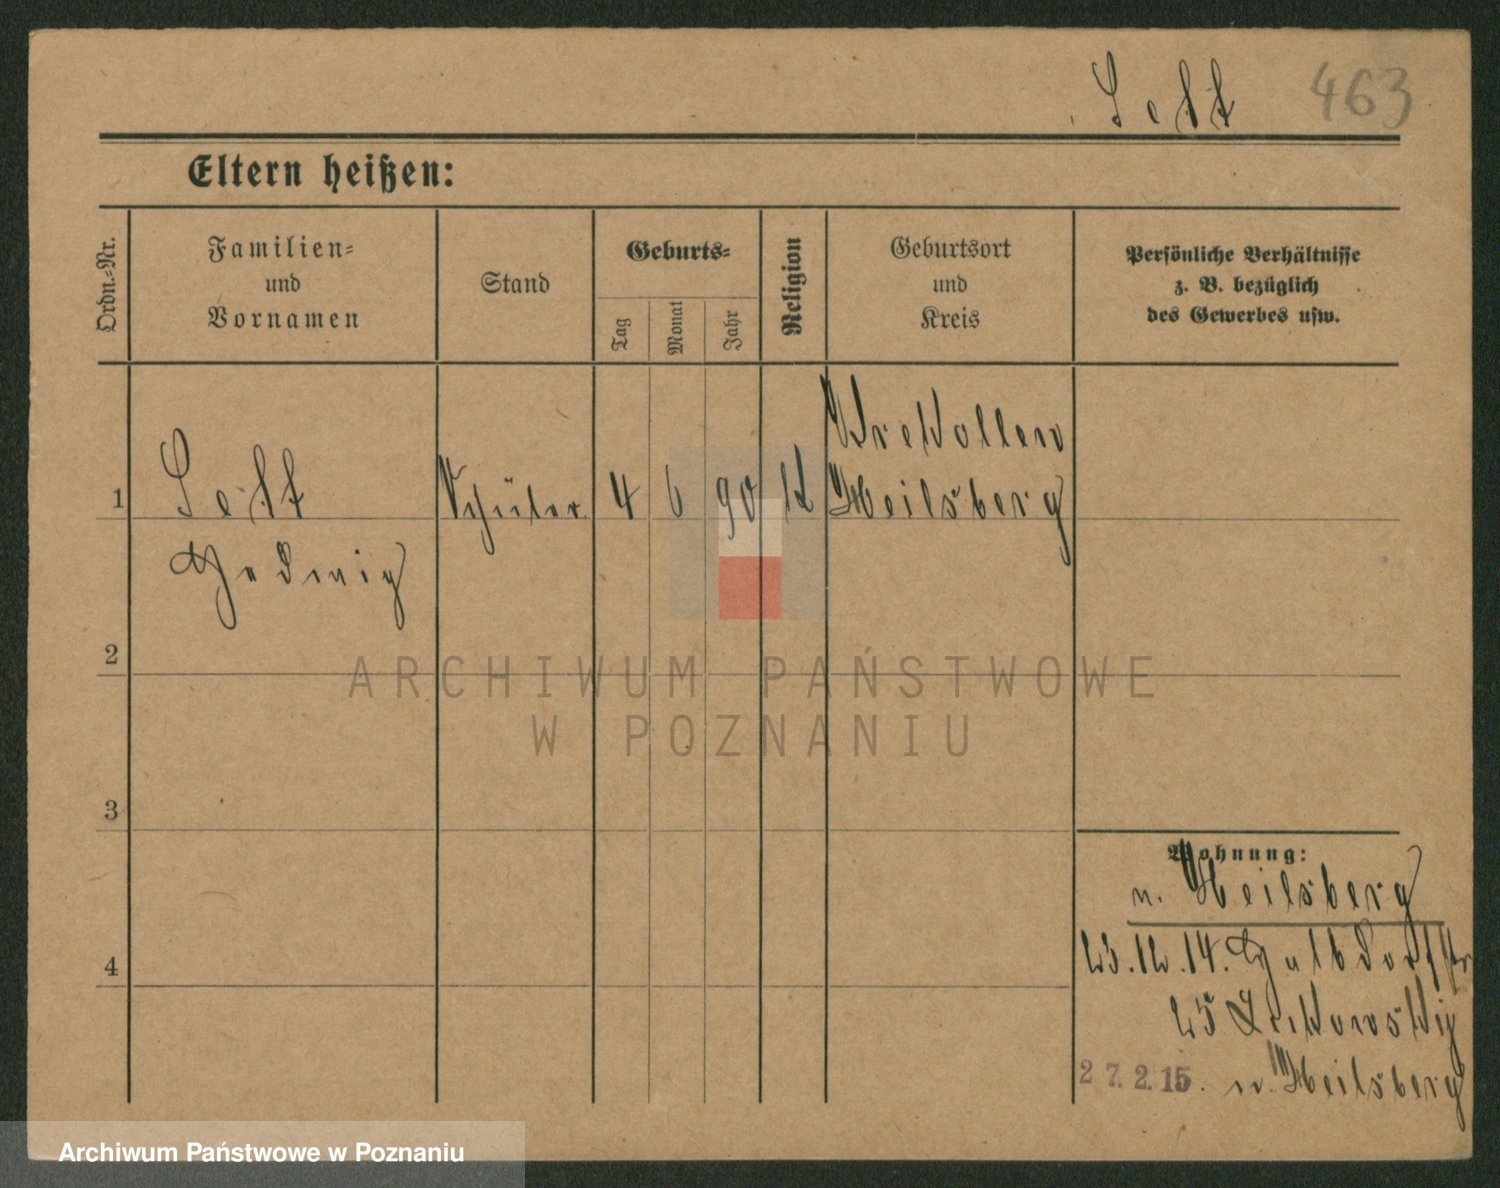 463
Eltern heißen:
Ordn.-Nr.
Familien-
und
Vornamen
Stand
Geburts-
Tag
Monat
Jahr
Religion
Geburtsort
und
Kreis
Persönliche Verhältnisse
z. B. bezüglich
des Gewerbes usw.
1
Schüler
4
6
90
Heilsberg
Hedwig
2
3
4
Wohnung:
n. Heilsberg
23.12.14. Halbdorfstr
25
27.2.15. n. Heilsberg
ARCHIWUM PAŃSTWOWE
W POZNANIU
Archiwum Państwowe w Poznaniu